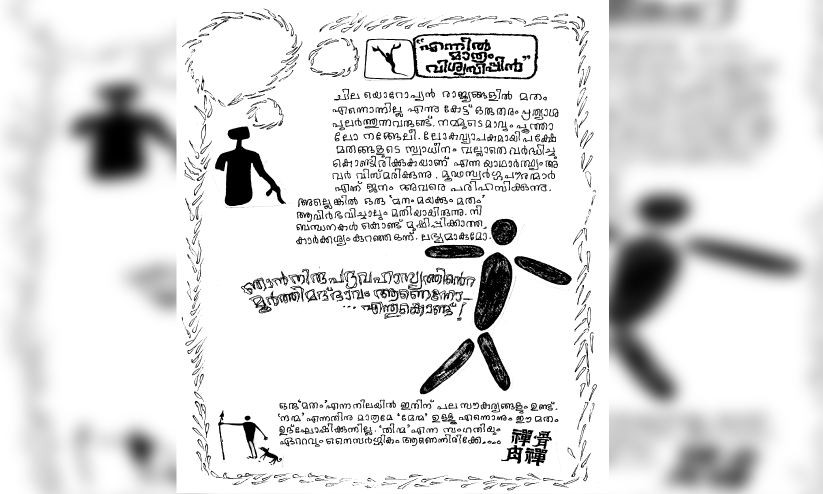 "എന്നിൽ
മാത്രം
വിശ്വസിപ്പിൻ"
ചില യൊറോപ്യൻ രാജ്യങ്ങളിൽ മതം
എന്നൊന്നില്ല എന്നു കേട്ട് ഒരുതരം പ്രത്യാശ
പുലർത്തുന്നവരുണ്ട്. നമ്മുടെമാവും പൂത്താ
ലോ നങ്ങേലീ. ലോകവ്യാപകമായി പക്ഷേ
മതങ്ങളുടെ സ്വാധീനം വല്ലാതെ വർദ്ധിച്ചു
കൊണ്ടിരിക്കുകയാണ് എന്ന യാഥാർത്ഥ്യം അ
വർ വിസ്മരിക്കുന്നു. മൂഢസ്വർഗ്ഗപൗരന്മാർ
എന്ന് ജനം അവരെ പരിഹസിക്കുന്നു.
അല്ലെങ്കിൽ ഒരു 'മനം മയക്കും മതം'
ആവിർഭവിച്ചാലും മതിയായിരുന്നു. നി
ബന്ധനകൾ കൊണ്ട് മുഷിപ്പിക്കാത്ത,
കാർക്കശ്യം കുറഞ്ഞ ഒന്ന്. ലഭ്യമാകുമോ.
ഞാൻ നിരുപദ്രവഹാസ്യത്തിന്റെ
മൂർത്തിമദ്ഭാവം ആണെന്നോ—
... എന്തുകൊണ്ട്!
ഒരു 'മതം' എന്ന നിലയിൽ ഇതിന് പല സൗകര്യങ്ങളും ഉണ്ട്.
'നന്മ' എന്നതിനു മാത്രമേ 'മേന്മ' ഉള്ളൂ എന്നൊന്നും ഈ മതം
ഉദ്ഘോഷിക്കുന്നില്ല. 'തിന്മ' എന്ന സംഗതിയും
ഏറ്റവും നൈസർഗ്ഗികം ആണെന്നിരിക്കേ....
禪骨
肉禪